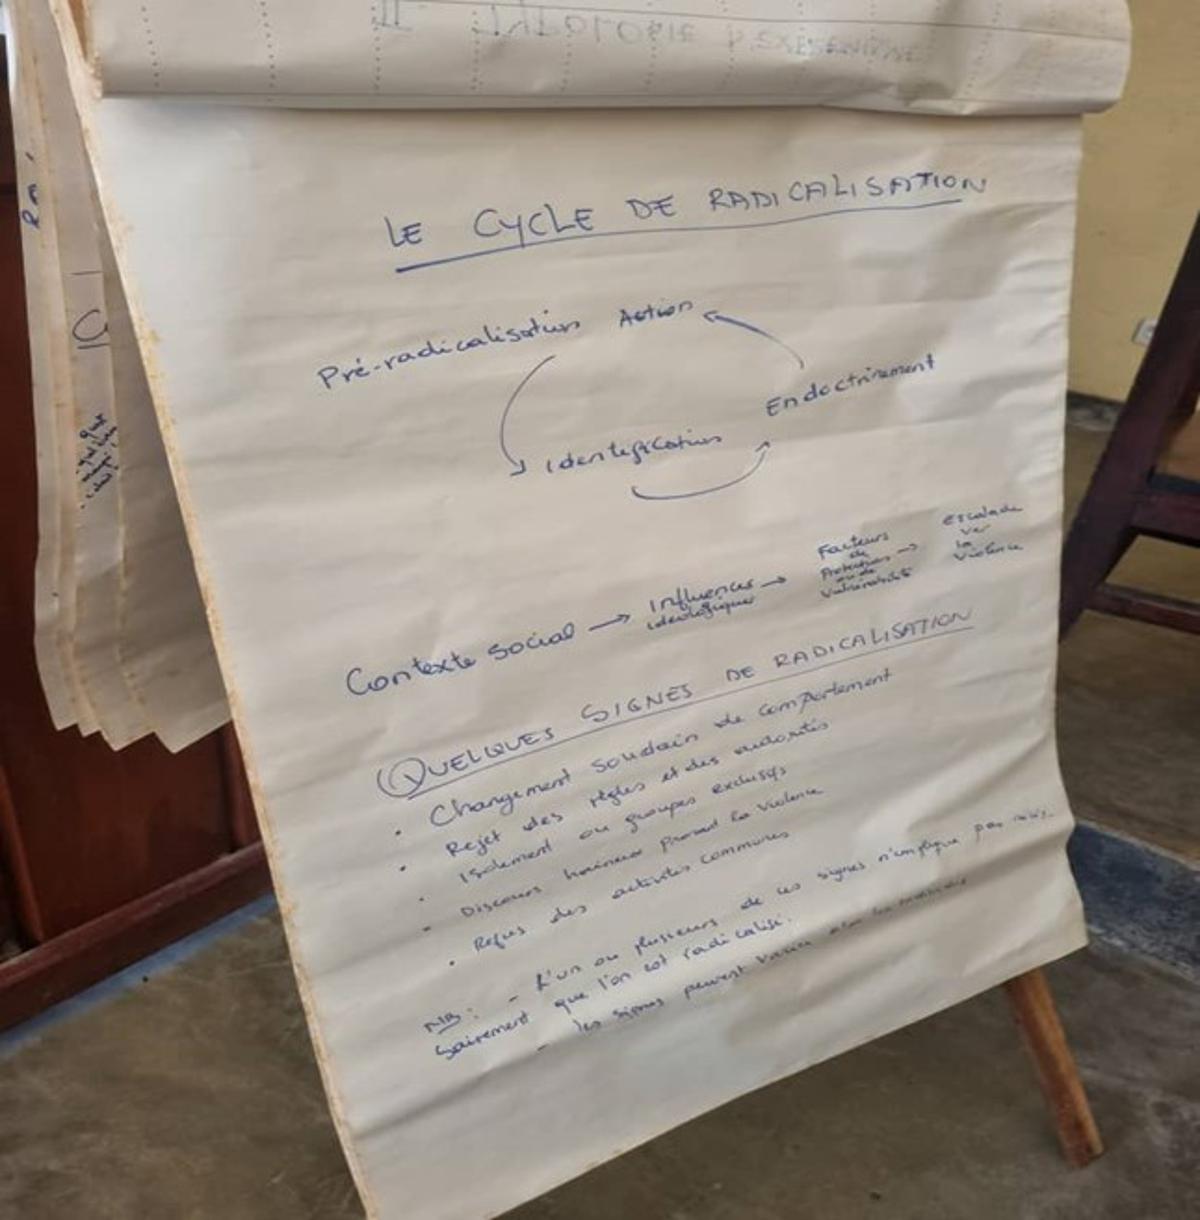 LE CYCLE DE RADICALISATION
Pré-radicalisation Action
Endoctrinement
Identification
Contexte social → Influences idéologiques → Facteurs de Protection ou de Vulnérabilité → Escalade ver la Violence
QUELQUES SIGNES DE RADICALISATION
• Changement soudain de comportement
• Rejet des règles et des autorités
• Isolement ou groupes exclusifs
• Discours haineux la violence
• Refus des activités communes
NB: - L'un ou plusieurs de ces signes n'implique pas néces-
sairement que l'on est radicalisé.
- les signes peuvent varier